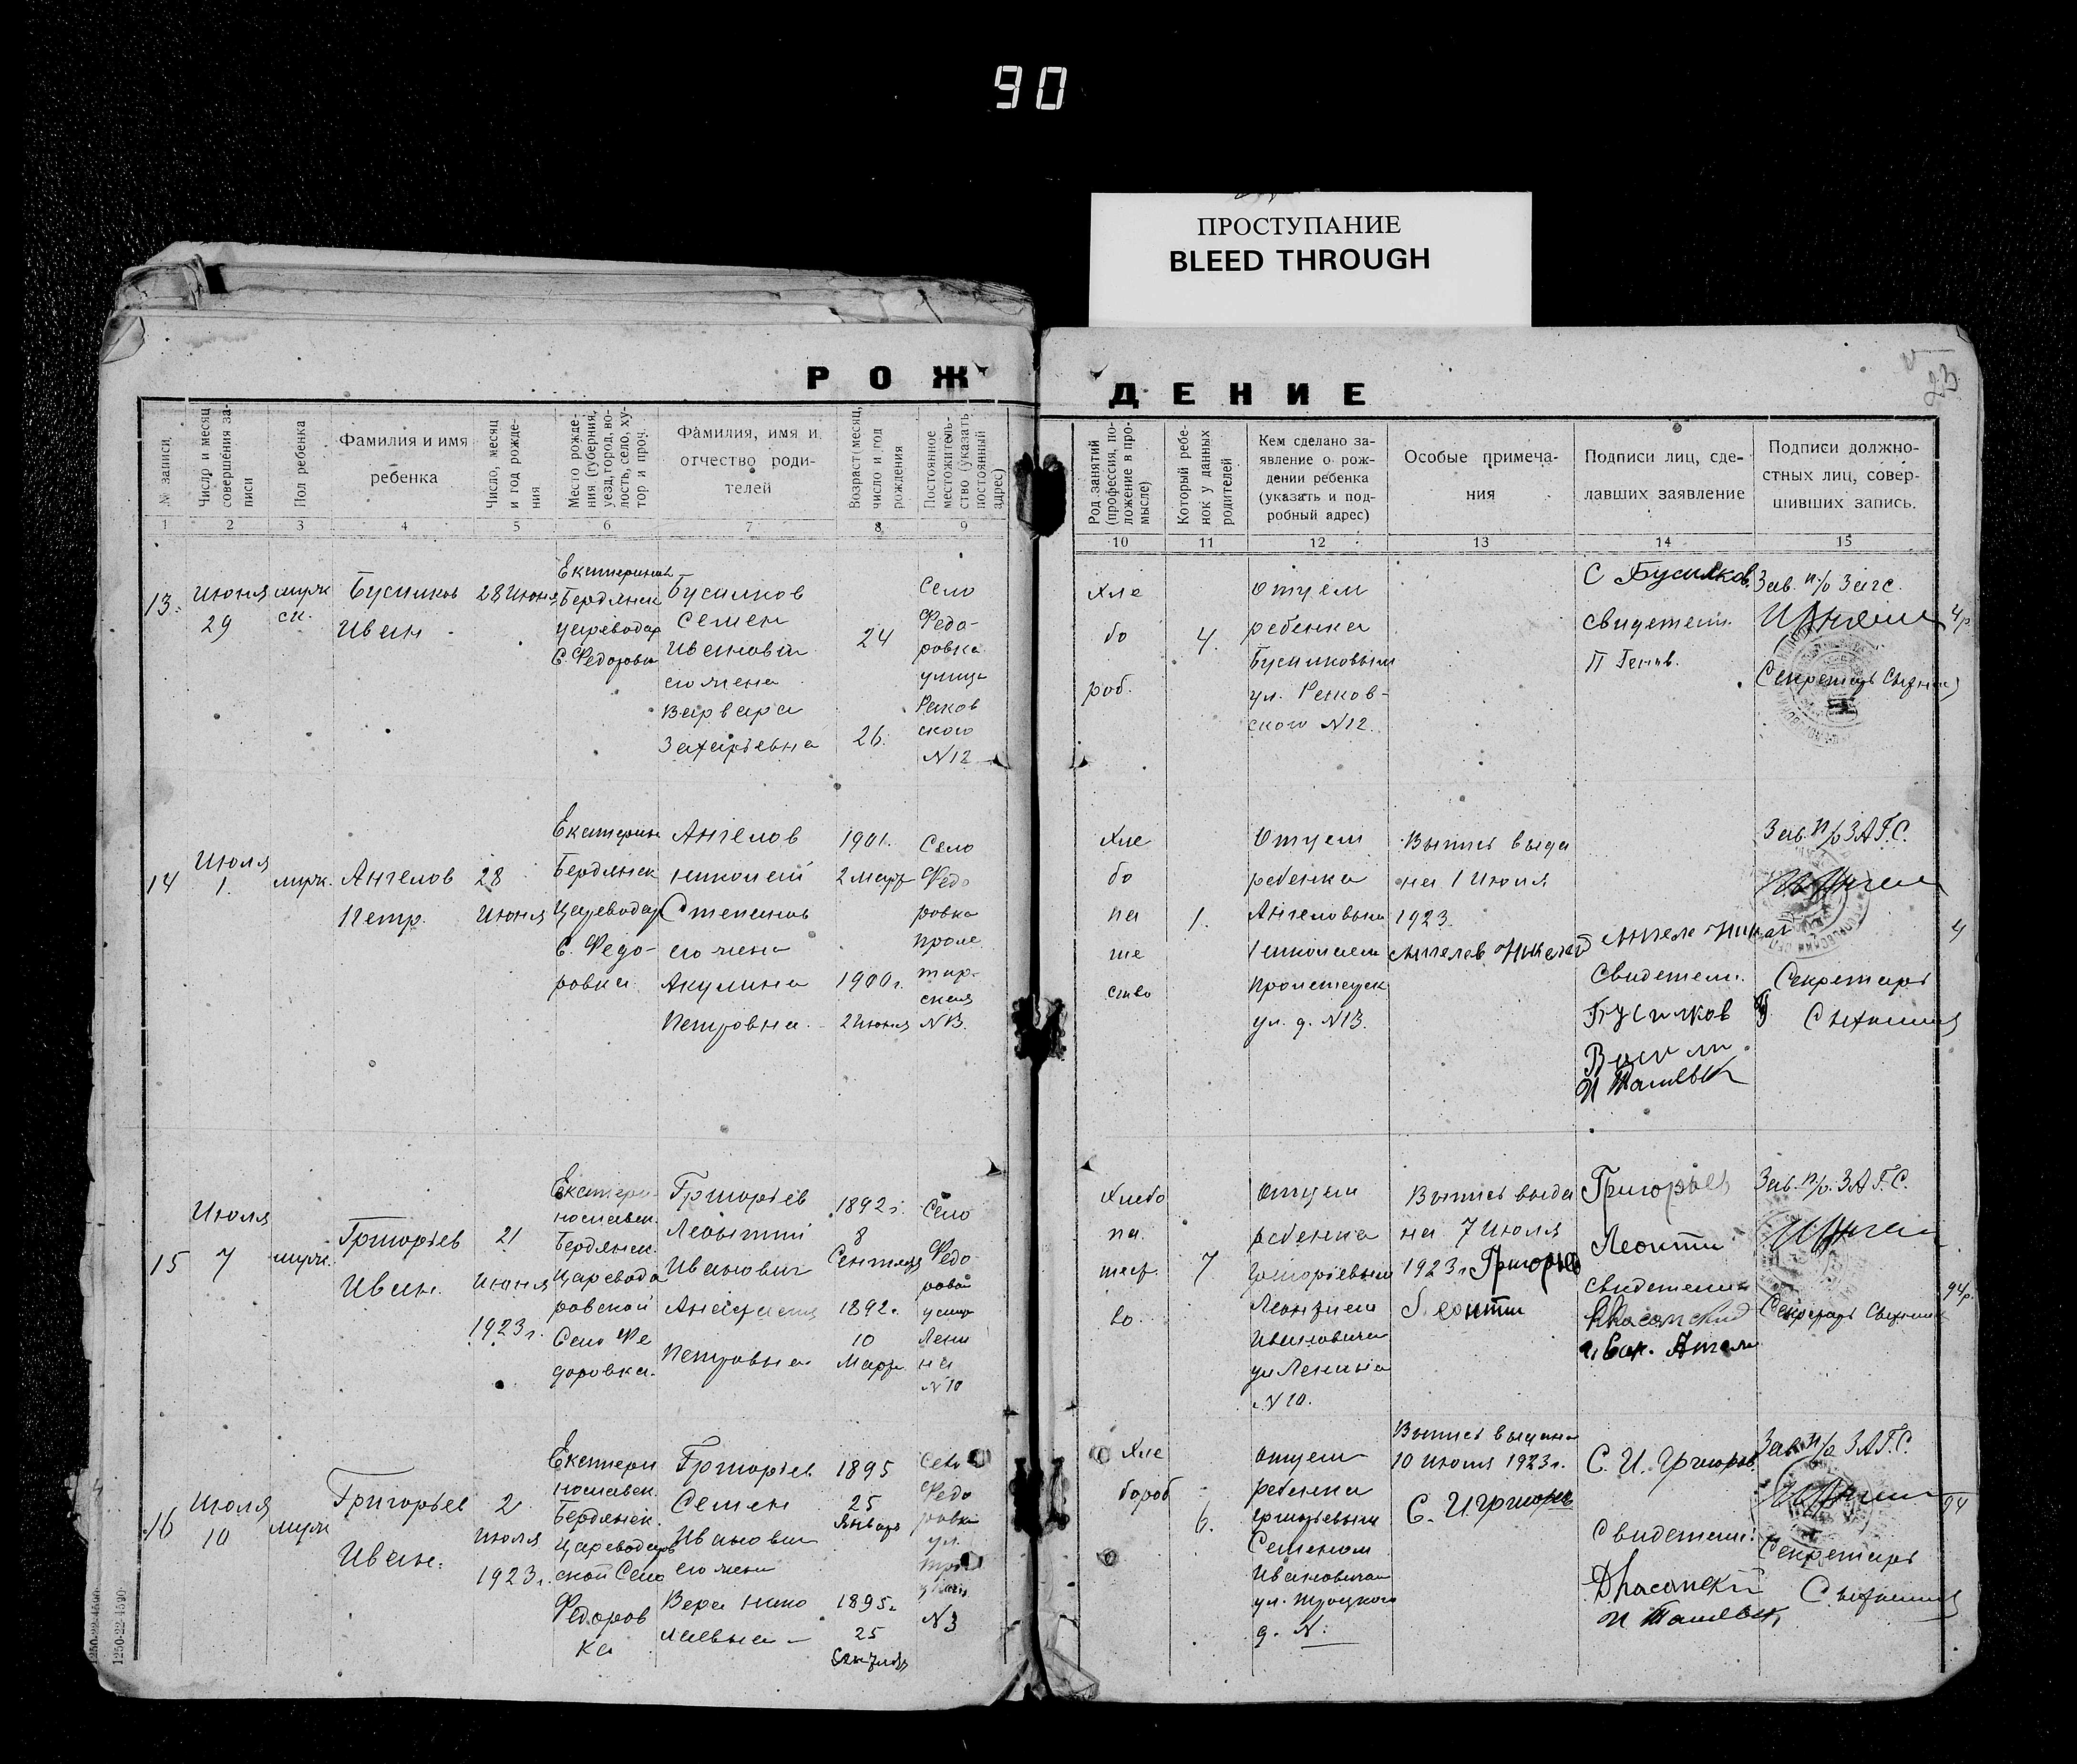 90
ПРОСТУПАНИЕ
BLEED THROUGH
РОЖ
ДЕНИЕ
23
№ записи
Число и месяц совершения записи
Пол ребенка
Фамилия и имя
ребенка
Число, месяц и год рождения
Место рождения (губерния, уезд, город, волость, село, хутор и проч.
Фамилия, имя и
отчество роди-
телей
Возраст (месяц, число и год рождения
Постоянное местожительство (указать постоянный адрес)
Род занятий (профессия, положение в промысле)
Который ребенок у данных родителей
Кем сделано за-
явление о рож-
дении ребенка
(указать и под-
робный адрес)
Особые примеча-
ния
Подписи лиц, сде-
лавших заявление
Подписи должно-
стных лиц, совер-
шивших запись.
1 2 3 4 5 6 7 8 9
10 11 12 13 14 15
13.
Июня
29
мужск.
Бусилков
Иван
28 Июня
Бердянск
Цареводар
С. Федоровка
Бусилков
Семен
Иванович
его жена
Варвара
Захарьевна
24
26.
Село
Федо-
ровка
улица
Раков
ского
N 12
хле
бо
роб.
4.
отцем
ребенка
Бусилковым
ул. Раков-
ского N12.
С Бусилков
свидетели.
П Генов.
Зав. п/о Загс.
Секретарь
14
Июля
1.
мужс.
Ангелов
Петр.
28
Июня
Екатерин
Бердянск
Цареводар
С. Федо-
ровка
Ангелов
Николай
Степанов
его жена
Акулина
Петровна.
1901.
2 март
1900 г.
2 Июня
Село
Федо
ровка
проле
тар-
ская
N13.
Хле
бо
па
ше
ство
1.
отцем
ребенка
Ангеловым
Николаем
ул. д. N13.
Выпись выда
на 1 Июля
1923.
Ангелов Николай
Свидетели.
Бусилков
Зав. п/о ЗАГС.
Секретарь
4
15
Июля
7
мужс.
Григорьев
Иван.
21
Июня
1923 г.
Екатери-
нославск.
Бердянск.
Царевода
ровской
Село Фе
доровка.
Григорьев
Леонтий
Иванович
Анастасия
Петровна
1892 г.
8
Сентября
1892 г.
10
Март
Село
Федо
ровка
улица
Лени
на
N 10
Хлебо
па.
шеств
во
7
отцем
ребенка
Григорьевым
Леонтием
Ивановичем
ул Ленина
N 10.
Выпись выда
на 7 Июля
1923 г. Григорьев
Леонти
Григорьев
Леонти
свидетели
Зав. п/о. ЗАГС.
Секретарь
94р.
16
Июля
10
мужс
Григорьев
Иван.
2
Июля
1923 г.
Екатери
нославск.
Бердянск.
Цареводар
ской Село
Федоров
ка
Григорьев
Семен
Иванович
его жена
Вера Нико
лаевна
1895
25
Январь
1895 г.
25
Сентябр
Село
Федо
ровка
ул.
N3
Хле
бороб
6.
отцем
ребенка
Григорьевым
Семеном
Ивановичем
ул. Троцкого
д. N.
Выпись выдана
10 Июля 1923 г.
С. И. Григорьев
С. И. Григоров.
Свидетели:
Зав. п/о ЗАГС.
Секретарь
94
1250-22-1590
1250-22-1590